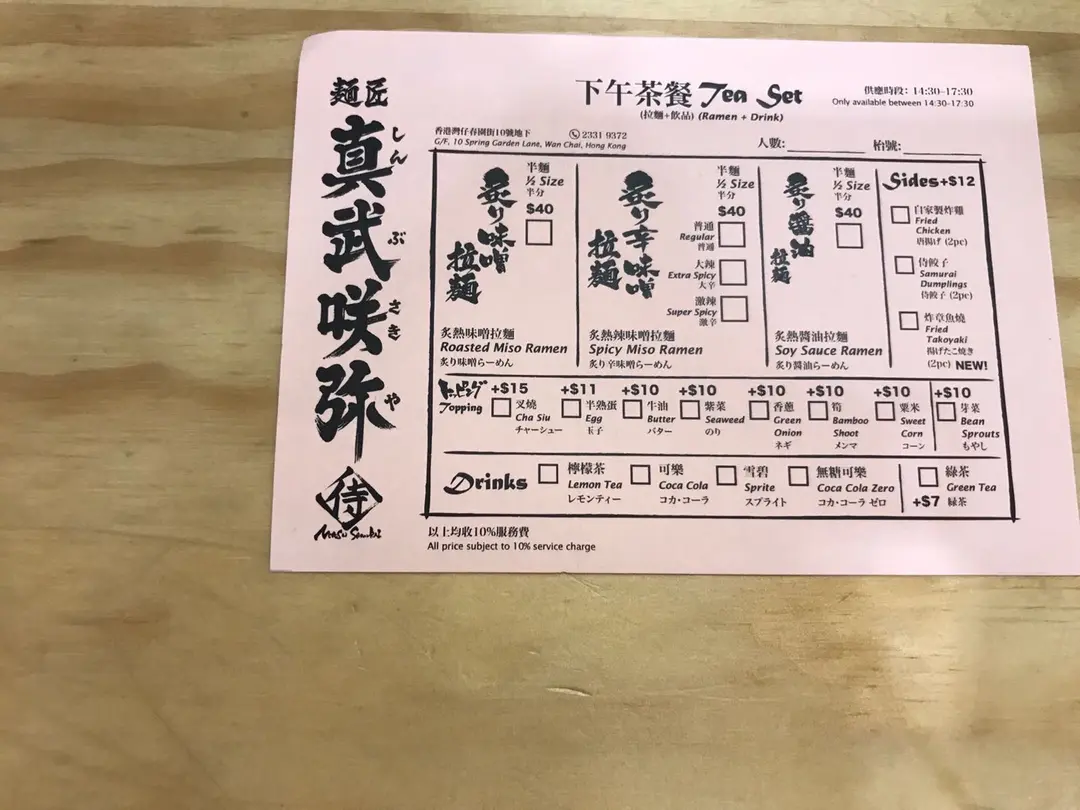 麺匠
真武咲弥
しん
ぶ
さき
や
侍
下午茶餐 Tea Set
(拉麵+飲品) (Ramen + Drink)
供應時段: 14:30-17:30
Only available between 14:30-17:30
香港灣仔春園街10號地下
2331 9372
G/F, 10 Spring Garden Lane, Wan Chai, Hong Kong
人數:
枱號:
炙り味噌
拉麵
半麵
½ Size
半分
$40
炙熱味噌拉麵
Roasted Miso Ramen
炙り味噌らーめん
炙り辛味噌
拉麵
半麵
½ Size
半分
$40
普通
Regular
普通
大辣
Extra Spicy
大辛
激辣
Super Spicy
激辛
炙熱辣味噌拉麵
Spicy Miso Ramen
炙り辛味噌らーめん
炙り醬油
拉麵
半麵
½ Size
半分
$40
炙熱醬油拉麵
Soy Sauce Ramen
炙り醬油らーめん
Sides+$12
自家製炸雞
Fried
Chicken
唐揚げ (2pc)
侍餃子
Samurai
Dumplings
侍餃子 (2pc)
炸章魚燒
Fried
Takoyaki
揚げたこ焼き
(2pc) NEW!
トッピング
Topping
+$15
叉燒
Cha Siu
チャーシュー
+$11
半熟蛋
Egg
玉子
+$10
牛油
Butter
バター
+$10
紫菜
Seaweed
のり
+$10
香蔥
Green
Onion
ネギ
+$10
筍
Bamboo
Shoot
メンマ
+$10
粟米
Sweet
Corn
コーン
+$10
芽菜
Bean
Sprouts
もやし
Drinks
檸檬茶
Lemon Tea
レモンティー
可樂
Coca Cola
コカ・コーラ
雪碧
Sprite
スプライト
無糖可樂
Coca Cola Zero
コカ・コーラ ゼロ
綠茶
Green Tea
+$7 緑茶
以上均收10%服務費
All price subject to 10% service charge